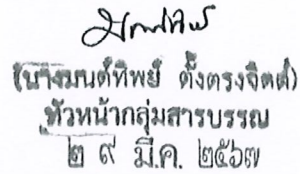 (นางมนต์ทิพย์ ตั้งตรงจิตต์)
หัวหน้ากลุ่มสารบรรณ
๒๙ มี.ค. ๒๕๖๗